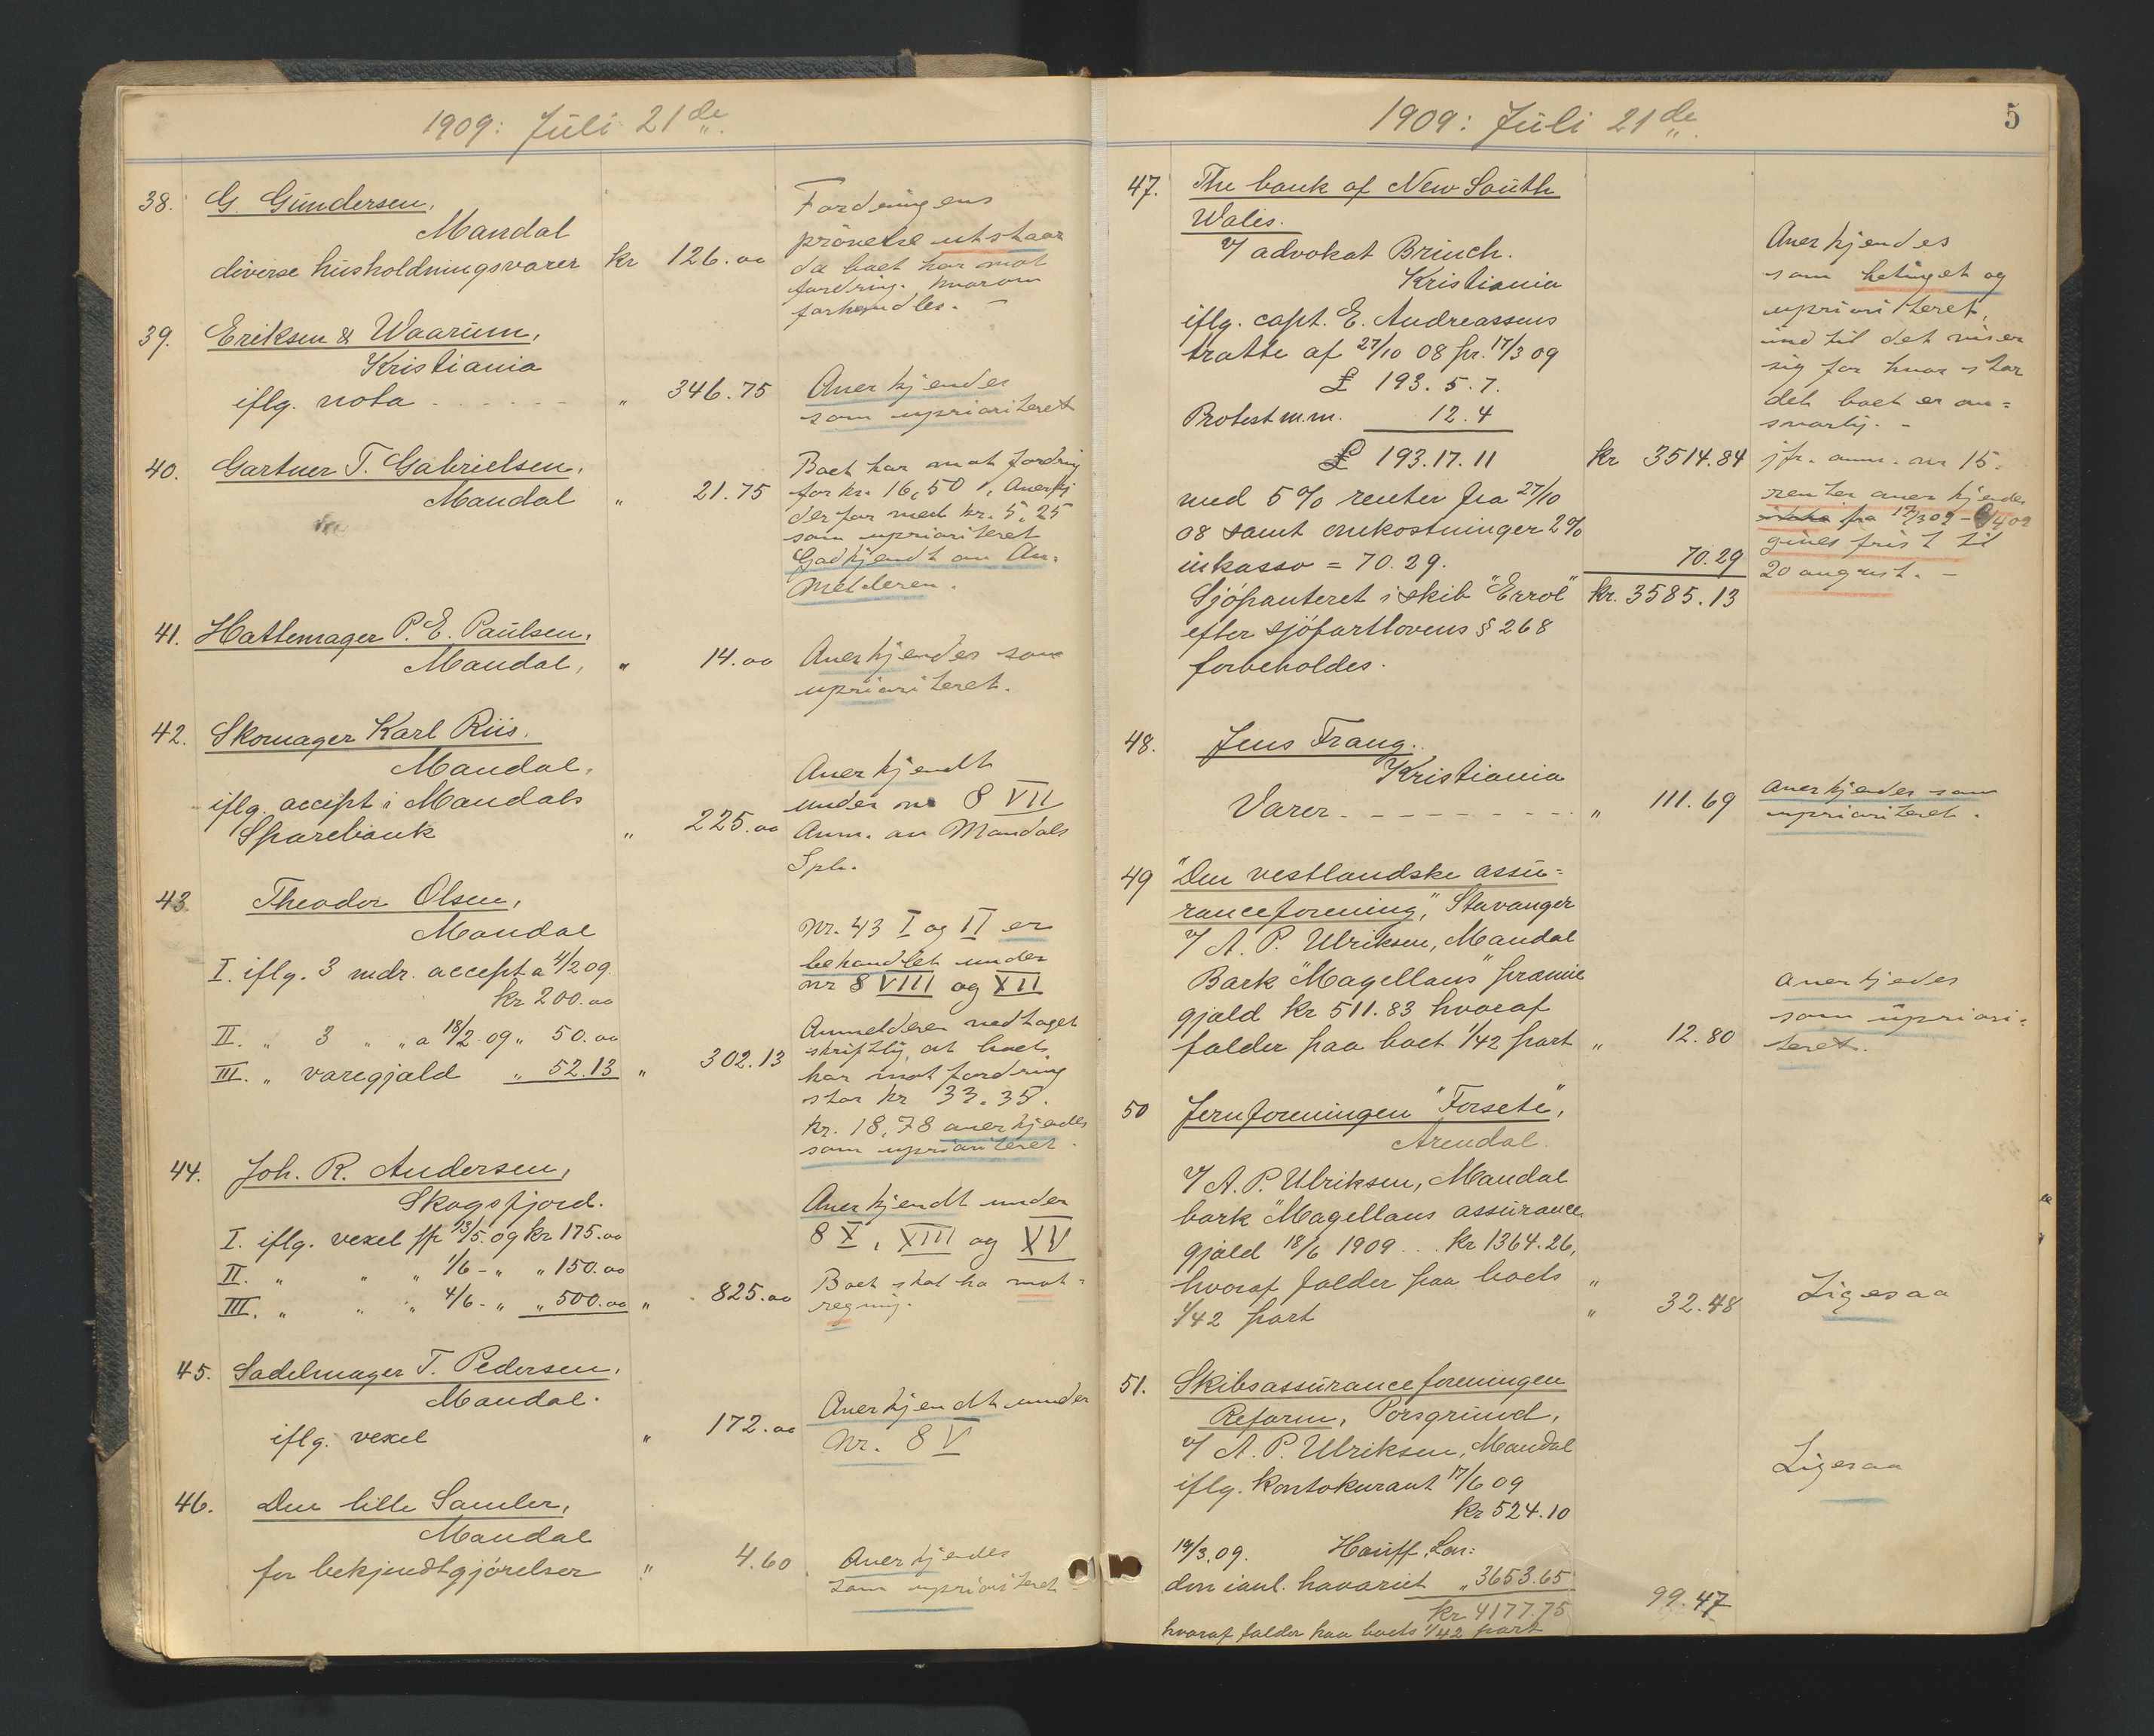 1909: Juli 21de
38. G. Gundersen,
Mandal
diverse husholdningsvarer kr 126.00
Fordringens
prövelse utstaar
da boet har mot
fordring. hvorom
forhandles. —
39. Eriksen & Waarum,
Kristiania
iflg. nota - - - - - " 346.75
Anerkjendes
som uprioriteret
40. Gartner T. Gabrielsen,
Mandal " 21.75
Boet har mot fordring
for kr. 16,50, Anerkj
derfor med kr. 5,25
som uprioriteret
Godkjendt av An-
melderen.
41. Hattemager P. E. Paulsen,
Mandal, " 14.00
Anerkjendes som
uprioriteret.
42. Skomager Karl Riis.
Mandal,
iflg. accept i Mandals
Sparebank " 225.00
Anerkjendt
under nr 8 VII
Anm. av Mandals
Spb.
43. Theodor Olsen,
Mandal
I. iflg. 3 mdr. accept a 4/2 09.
kr 200.00
II. " 3 " " a 18/2 09 " 50.00
III. " varegjæld " 52.13 " 302.13
Nr. 43 I og II er
behandlet under
nr 8 VIII og XII
Anmelderen vedtaget
skriftlig, at boet
har mot fordring
stor kr 33.35.
kr. 18,78 anerkjendes
som uprioriteret.
44. Joh. R. Andersen,
Skogsfjord.
I. iflg. vexel pr 13/5 09 kr 175.00
II. " " " 1/6 - " " 150.00
III. " " " 4/6 - " " 500.00 " 825.00
Anerkjendt under
8 X, XIII og XV
Boet skal ha mot-
regning.
45. Sadelmager T. Pedersen,
Mandal.
iflg. vexel " 172.00
Anerkjendt under
Nr. 8 V
46. Den lille Samler,
Mandal
for bekjendtgjörelser " 4.60
Anerkjendes
som uprioriteret
1909: Juli 21de
5
47. The bank of New South
Wales.
v/ advokat Brinch.
Kristiania
iflg. capt. E. Andreassens
tratte af 27/10 08 pr. 17/3 09
£ 193. 5. 7.
Protest m.m. 12. 4
£ 193. 17. 11 kr 3514.84
med 5% renter fra 27/10
08 samt omkostninger 2%
inkasso = 70.29. 70.29
Sjöpanteret i skib "Errol" kr. 3585.13
efter sjöfartlovens § 268
forbeholdes.
Anerkjendes
som betinget og
uprioriteret,
ind til det viser
sig for hvor stor
del boet er an-
svarlig. —
jfr. anm. nr 15.
renter anerkjendes
ikke fra 17/3 09 -
gives frist til
20 august. —
48. Jens Frang.
Kristiania
Varer - - - - - - - - " 111.69
anerkjendes som
uprioriteret.
49 "Den vestlandske assu-
ranceforening", Stavanger
v/ A. P. Ulriksen, Mandal
Bark "Magellans" præmie
gjæld kr 511.83 hvoraf
falder paa boet 1/42 part " 12.80
Anerkjendes
som upriori-
teret.
50 Jernforeningen "Forsete",
Arendal.
v/ A. P. Ulriksen, Mandal
bark "Magellans assurance
gjæld 18/6 1909 . . . kr 1364.26,
hvoraf falder paa boets "
1/42 part " 32.48
Ligesaa
51. Skibsassuranceforeningen
Reform, Porsgrund,
v/ A. P. Ulriksen, Mandal
iflg. Kontokurant 17/6 09
kr 524.10
19/3. 09.
havariet " 3653.65
kr 4177.75 99.47
hvoraf falder paa boets 1/42 part
Ligesaa